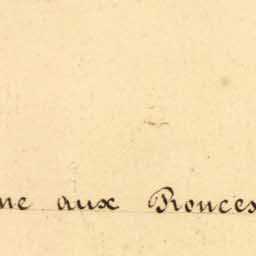 ne aux Ronces